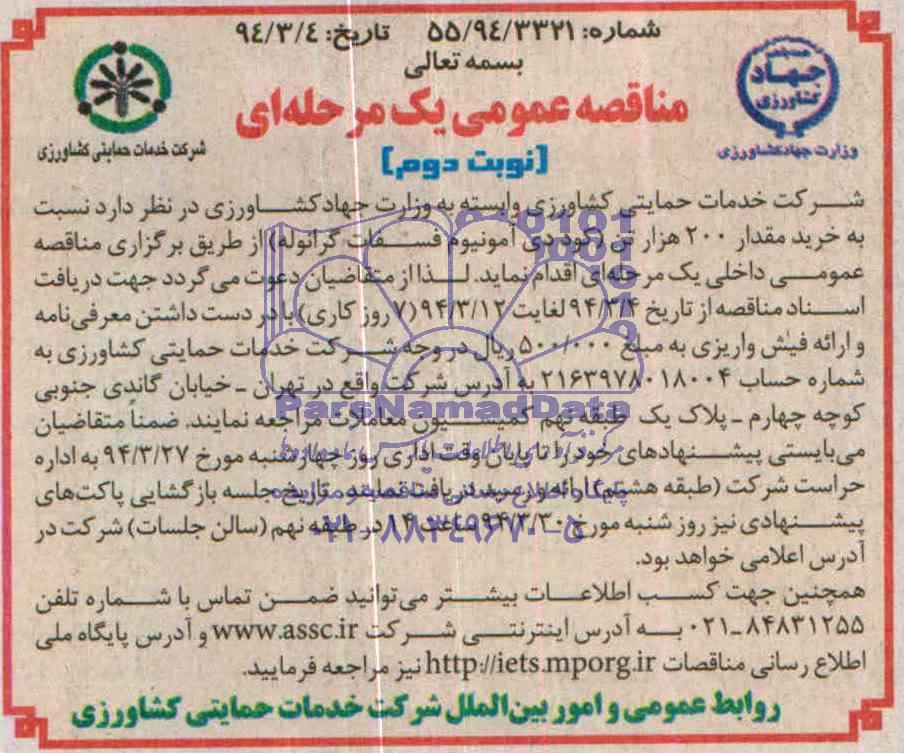 شماره: ۵۵/۹٤/۳۳۲۱ تاریخ: ۹٤/۳/٤
بسمه تعالی
جهاد
کشاورزی
وزارت جهاد کشاورزی
مناقصه عمومی یک مرحله‌ای
شرکت خدمات حمایتی کشاورزی
(نوبت دوم)
شرکت خدمات حمایتی کشاورزی وابسته به وزارت جهاد کشاورزی در نظر دارد نسبت
به خرید مقدار ۲۰۰ هزار تن (کود دی آمونیوم فسفات گرانوله) از طریق برگزاری مناقصه
عمومی داخلی یک مرحله‌ای اقدام نماید. لذا از متقاضیان دعوت می گردد جهت دریافت
اسناد مناقصه از تاریخ ۹۴/۳/۴ لغایت ۹۴/۳/۱۲ (۷ روز کاری) با در دست داشتن معرفی‌نامه
و ارائه فیش واریزی به مبلغ ۵۰۰/۰۰۰ ریال در وجه شرکت خدمات حمایتی کشاورزی به
شماره حساب ۲۱۶۳۹۷۸۰۱۸۰۰۴ به آدرس شرکت واقع در تهران ـ خیابان گاندی جنوبی
ParsNamadData
کوچه چهارم ـ پلاک یک طبقه نهم کمیسیون معاملات مراجعه نمایند. ضمناً متقاضیان
می‌بایستی پیشنهادهای خود را تا پایان وقت اداری روز چهارشنبه مورخ ۹۴/۳/۲۷ به اداره
حراست شرکت (طبقه هشتم) ارائه و رسید دریافت نمایند. تاریخ جلسه بازگشایی پاکت‌های
پیشنهادی نیز روز شنبه مورخ ۹۴/۳/۳۰ ساعت ۱۴ در طبقه نهم (سالن جلسات) شرکت در
۰۲۱-۸۸۳٤۹۶۷۰-۵
آدرس اعلامی خواهد بود.
همچنین جهت کسب اطلاعات بیشتر می‌توانید ضمن تماس با شماره تلفن
۰۲۱ـ۸۴۸۳۱۲۵۵ به آدرس اینترنتی شرکت www.assc.ir و آدرس پایگاه ملی
اطلاع رسانی مناقصات http://iets.mporg.ir نیز مراجعه فرمایید.
روابط عمومی و امور بین‌الملل شرکت خدمات حمایتی کشاورزی